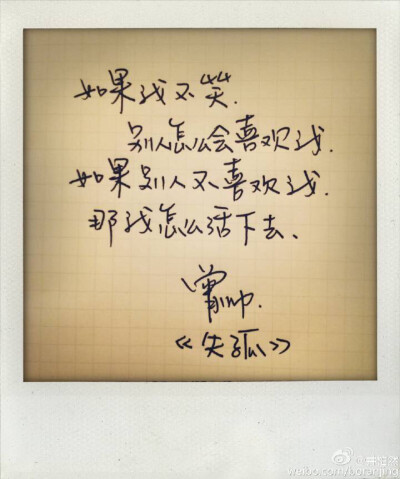 如果我不笑.
别人怎么会喜欢我.
如果别人不喜欢我.
那我怎么活下去、
曾帅.
《失孤》
weibo.com/boranjing